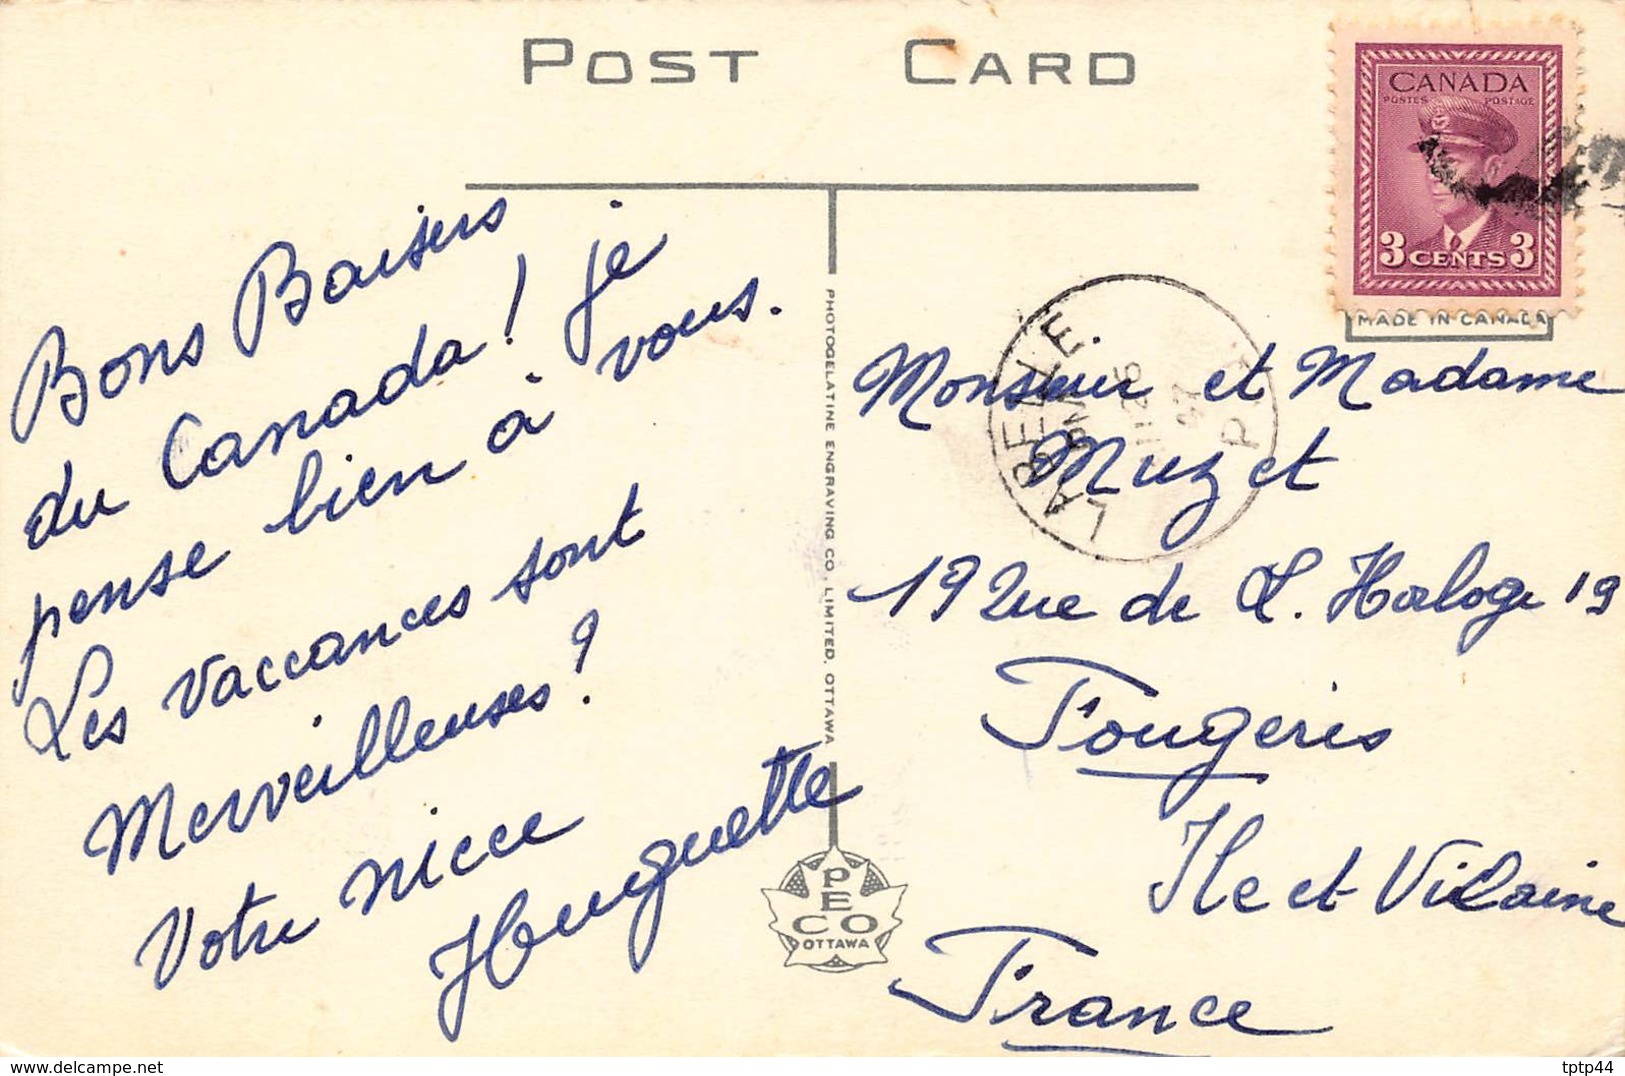 POST CARD
CANADA
POSTES POSTAGE
3 CENTS 3
MADE IN CANADA
Bons Baisers
du Canada! je
pense bien à vous.
Les vaccances sont
Merveilleuses!
Votre nicce
Huguette
PHOTOGELATINE ENGRAVING CO. LIMITED, OTTAWA
PECO
OTTAWA
LABELLE
PM
VII 25
47
P.Q.
Monsieur et Madame
Muzet
19 Rue de L. Horloge 19
Fougeres
Ile et Vilaine
France
tptp44